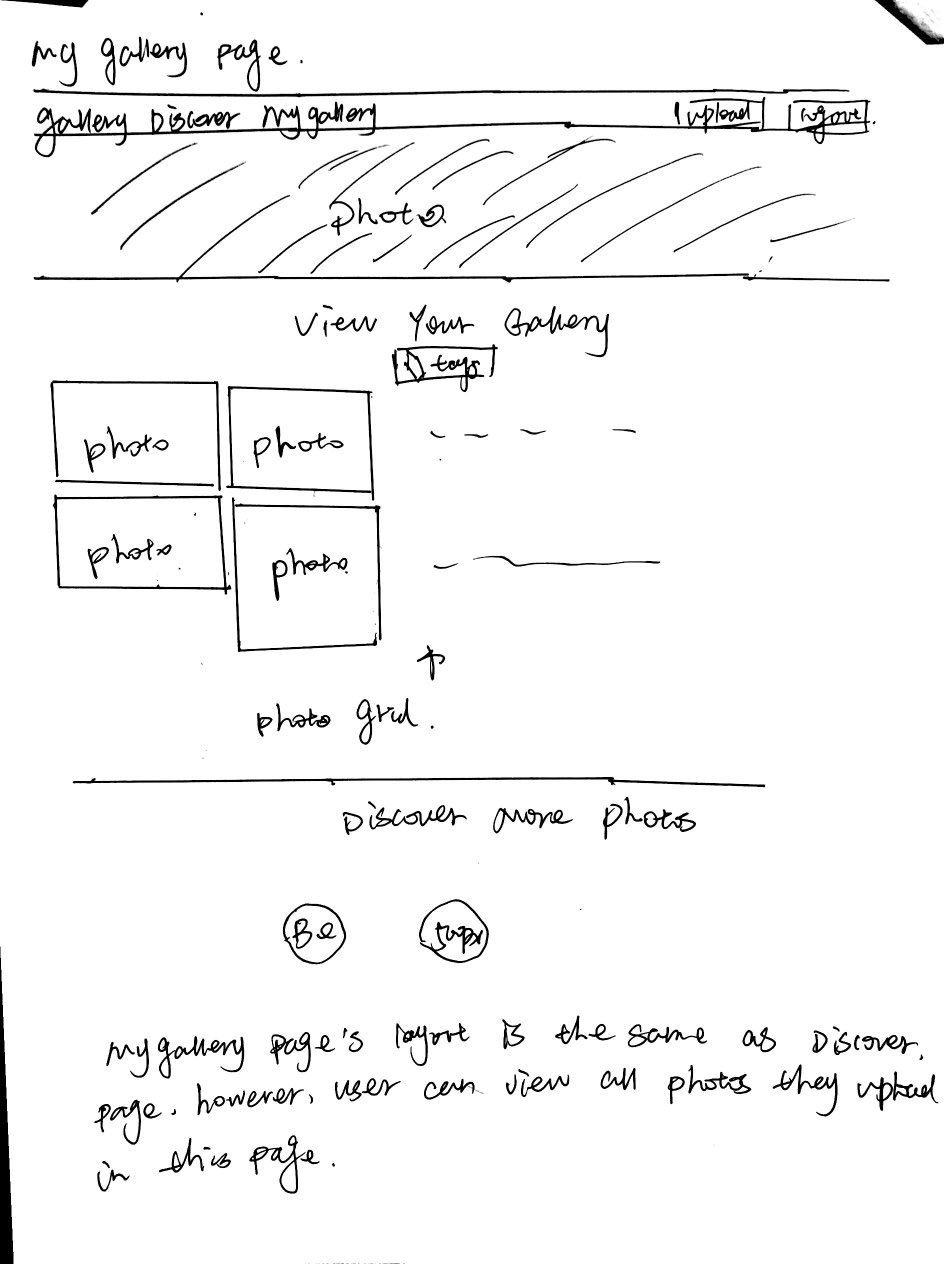 My gallery page.
gallery Discover My gallery upload logout
photo
View Your Gallery
tags
photo photo
photo photo
photo grid.
Discover more photos
Be 500px
My gallery page's layout is the same as Discover
page. however, user can view all photos they upload
in this page.